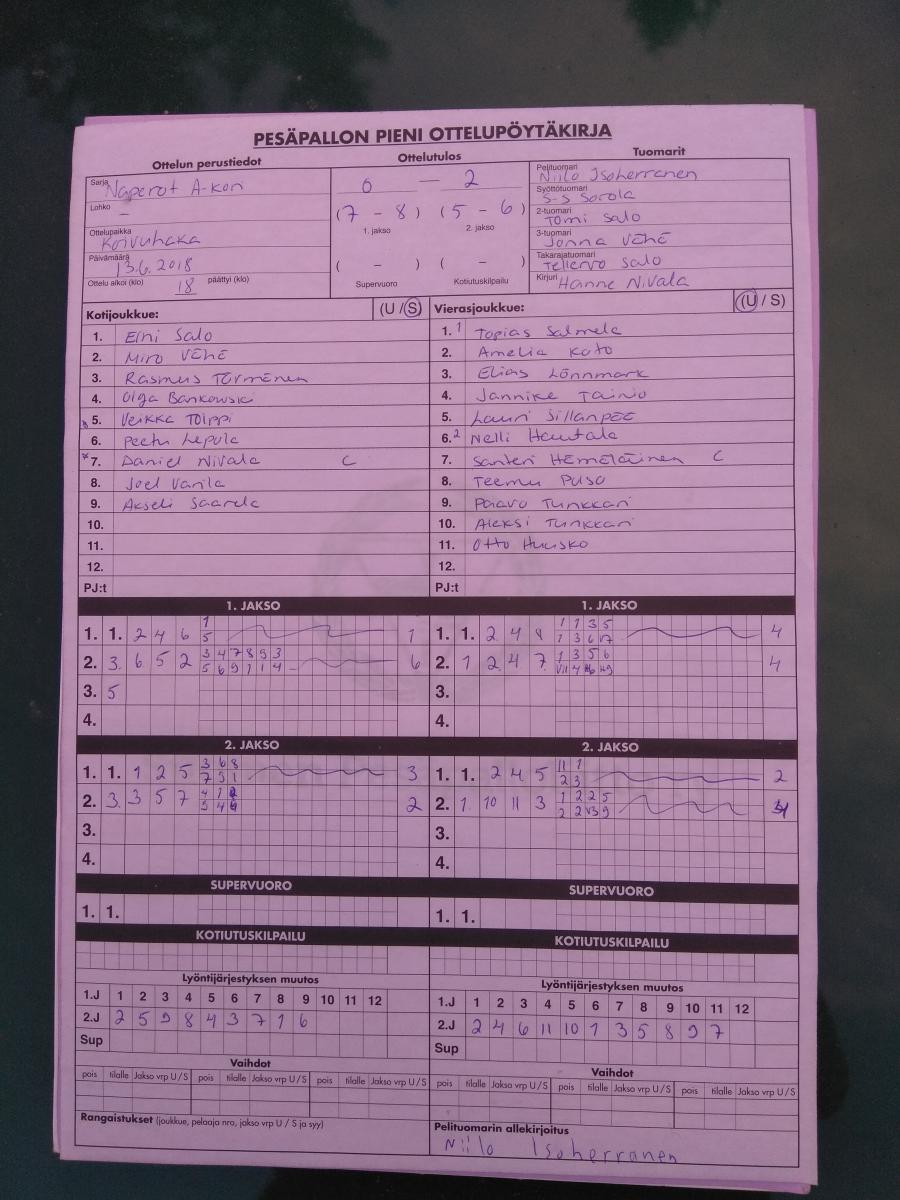 PESÄPALLON PIENI OTTELUPÖYTÄKIRJA
Ottelun perustiedot
Ottelutulos
Tuomarit
Sarja Naperot A-kori
Lohko –
Ottelupaikka Koivuhaka
Päivämäärä 13.6.2018
Ottelu alkoi (klo) 18 päättyi (klo)
0 – 2
(7 – 8) (5 – 6)
1. jakso 2. jakso
( – ) ( – )
Supervuoro Kotiutuskilpailu
Pelituomari Niilo Isoherranen
Syöttötuomari S-S Sorola
2-tuomari Tomi Salo
3-tuomari Jonna Vähä
Takarajatuomari Tellervo Salo
Kirjuri Hanne Nivala
Kotijoukkue: (U / S)
1. Eini Salo
2. Miro Vähä
3. Rasmus Törmänen
4. Olga Bankowski
5. Veikka Tölppi
6. Peetu Lepola
*7. Daniel Nivala C
8. Joel Varila
9. Akseli Saarela
10.
11.
12.
PJ:t
Vierasjoukkue: (U / S)
1. 1 Topias Salmela
2. Amelia Kato
3. Elias Lönnmark
4. Jannike Tainio
5. Lauri Sillanpää
6. 2 Nelli Hautala
7. Santeri Hämäläinen C
8. Teemu Puso
9. Paavo Tunkkari
10. Aleksi Tunkkari
11. Otto Huusko
12.
PJ:t
1. JAKSO
1. 1. 2 4 6 1 1
5
2. 3. 6 5 2 3 4 7 8 9 3 6
5 6 9 1 1 4 –
3. 5
4.
1. JAKSO
1. 1. 2 4 8 1 1 3 5 4
1 3 6 17
2. 1 2 4 7. 1 3 5 6 4
3.
4.
2. JAKSO
1. 1. 1 2 5 3 6 8 3
7 9 1
2. 3. 3 5 7 2
3.
4.
2. JAKSO
1. 1. 2 4 5 11 1 2
2 3
2. 1. 10 11 3 1 2 2 5
3.
4.
SUPERVUORO
1. 1.
SUPERVUORO
1. 1.
KOTIUTUSKILPAILU
KOTIUTUSKILPAILU
Lyöntijärjestyksen muutos
1.J 1 2 3 4 5 6 7 8 9 10 11 12
2.J 2 5 9 8 4 3 7 1 6
Sup
Lyöntijärjestyksen muutos
1.J 1 2 3 4 5 6 7 8 9 10 11 12
2.J 2 4 6 11 10 1 3 5 8 9 7
Sup
Vaihdot
pois tilalle Jakso vrp U / S pois tilalle Jakso vrp U / S pois tilalle Jakso vrp U / S
Vaihdot
pois tilalle Jakso vrp U / S pois tilalle Jakso vrp U / S pois tilalle Jakso vrp U / S
Rangaistukset (joukkue, pelaaja nro, jakso vrp U / S ja syy)
Pelituomarin allekirjoitus
Niilo Isoherranen